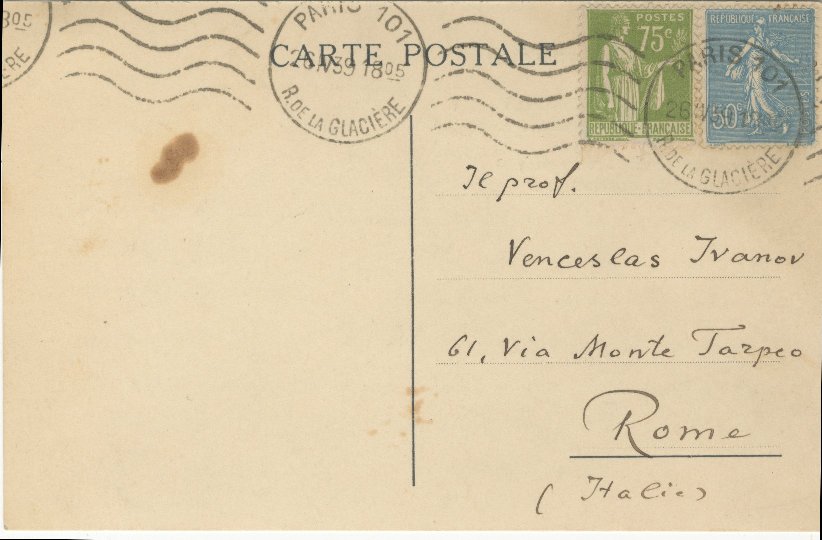 PARIS 101
26 IV 39 1805
R. DE LA GLACIÈRE
CARTE POSTALE
POSTES
75c
RÉPUBLIQUE FRANÇAISE
RÉPUBLIQUE FRANÇAISE
50c
PARIS 101
R. DE LA GLACIÈRE
Il prof.
Venceslas Ivanov
61, Via Monte Tarpeo
Rome
(Italie)